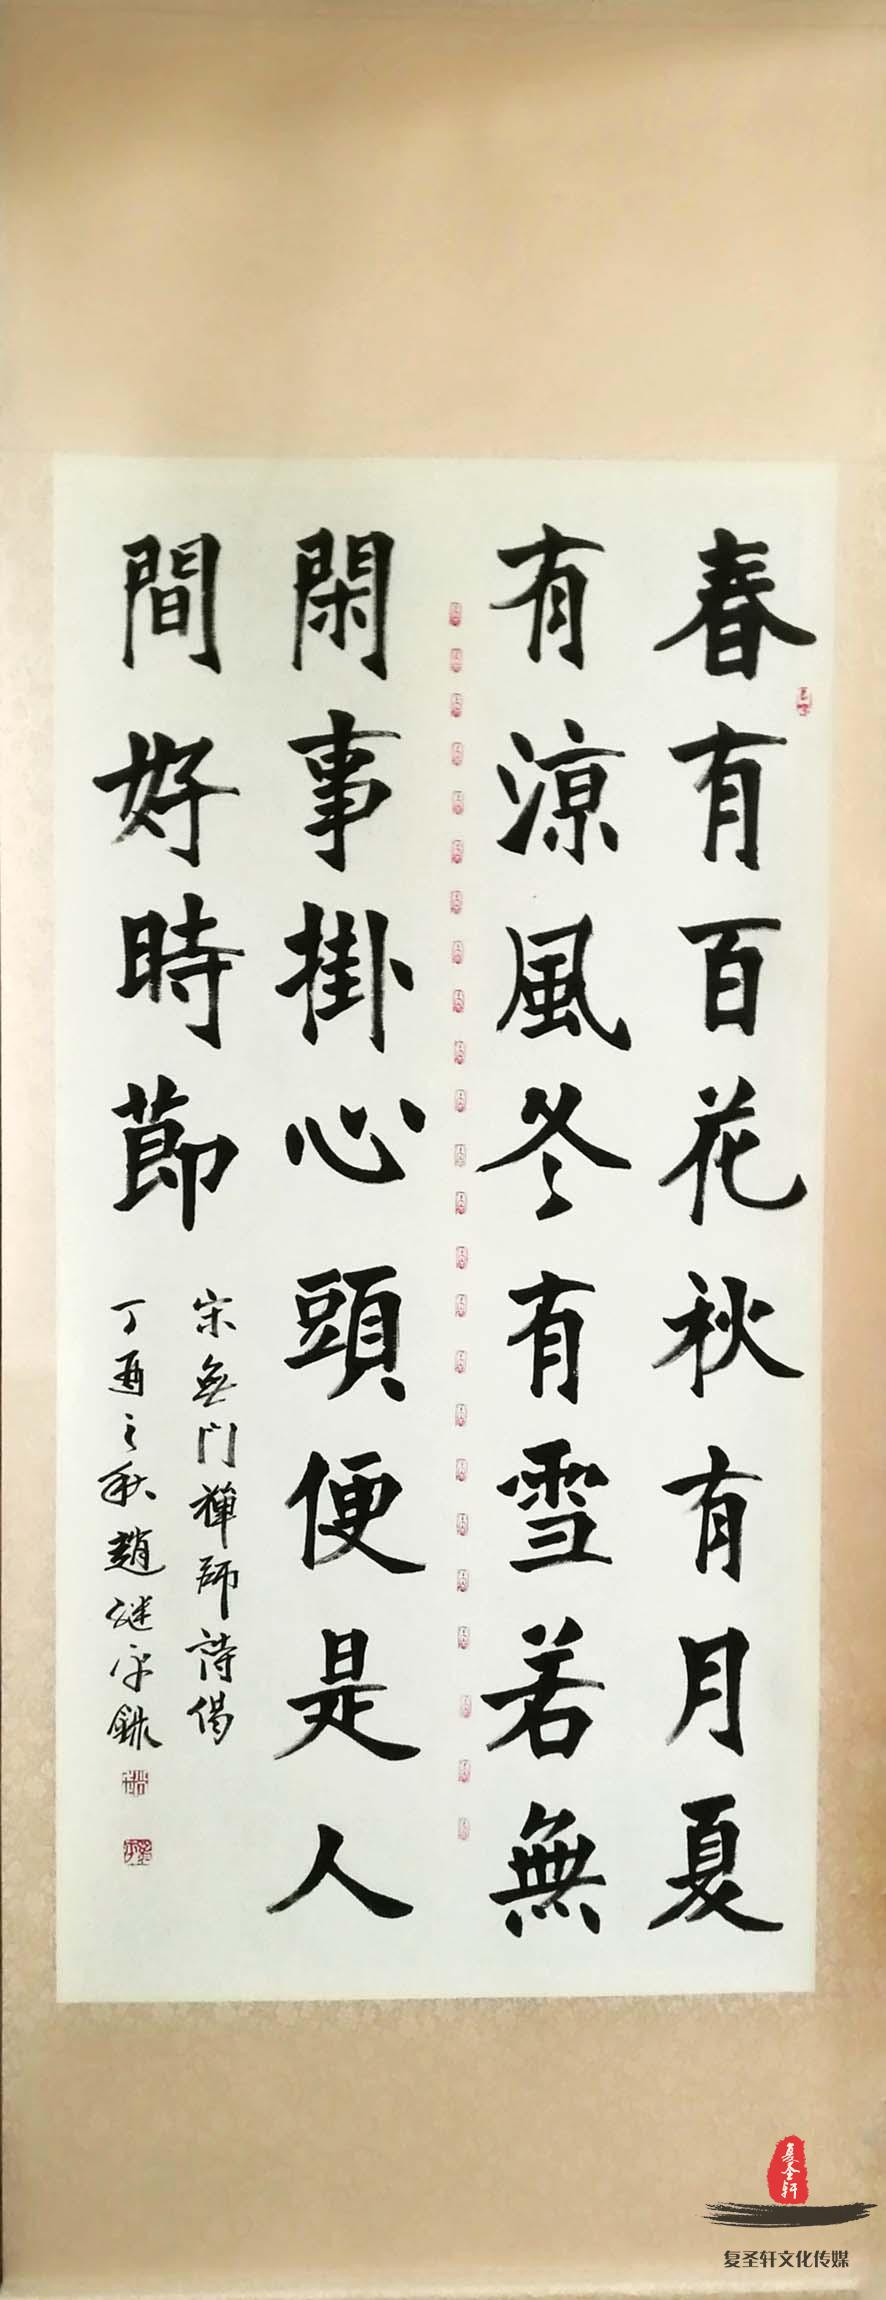 春有百花秋有月夏
有涼風冬有雪若無
閑事掛心頭便是人
間好時節
宋無門禪師詩偈
丁酉之秋趙继平錄
复圣轩
复圣轩文化传媒